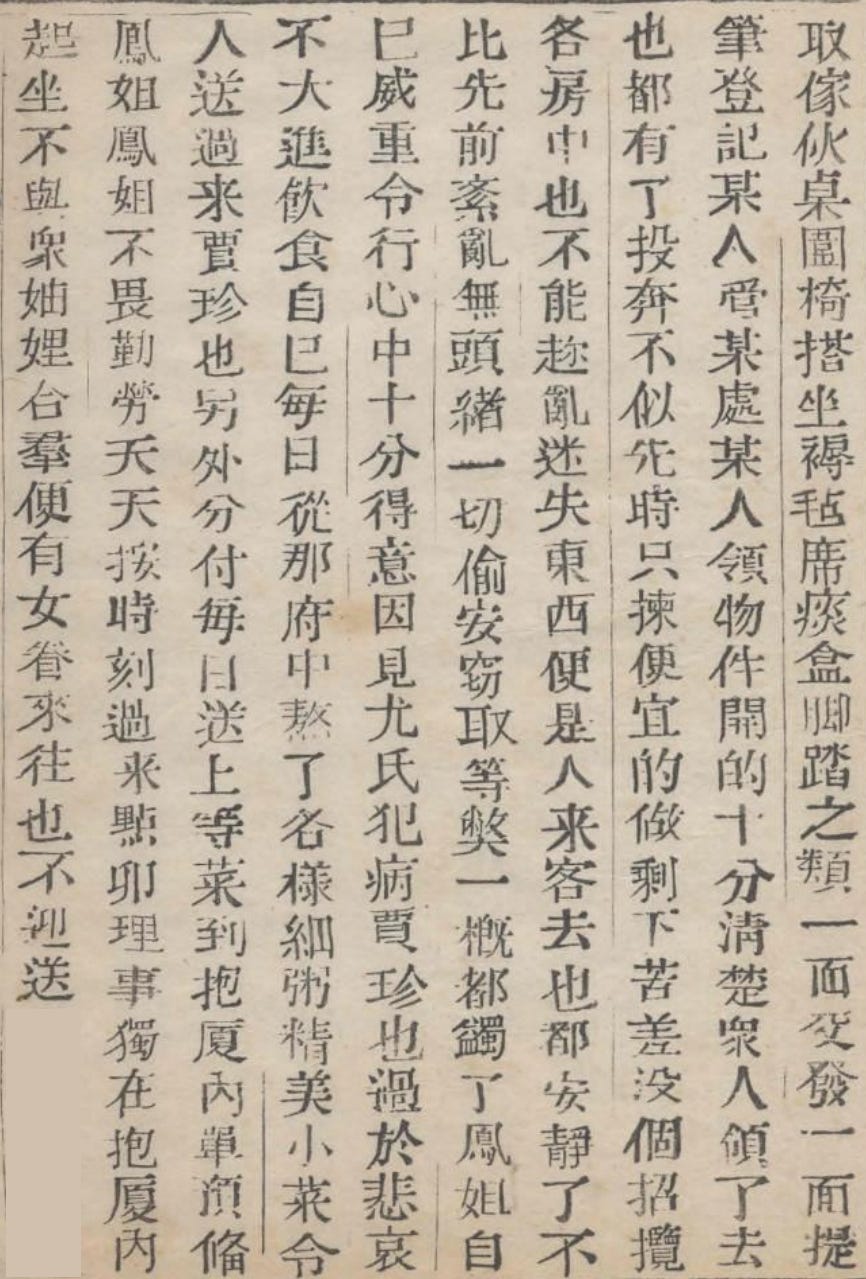 取傢伙桌圍椅搭坐褥毡席痰盒脚踏之類一面交發一面提
筆登記某人管某處某人領物件開的十分清楚衆人領了去
也都有了投奔不似先時只揀便宜的做剩下苦差没個招攬
各房中也不能趂亂迷失東西便是人来客去也都安靜了不
比先前紊亂無頭緒一切偷安窃取等獘一概都蠲了鳳姐自
已威重令行心中十分得意因見尤氏犯病賈珍也過於悲哀
不大進飲食自巳每日從那府中熬了各樣細粥精美小菜令
人送過来賈珍也另外分付每日送上等菜到抱厦内單預俻
鳳姐鳳姐不畏勤勞天天按時刻過来點卯理事獨在抱厦内
起坐不與衆妯娌合羣便有女眷來往也不迎送